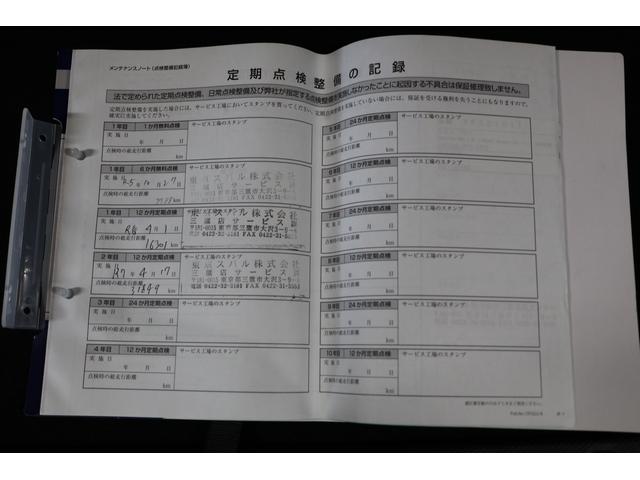 メンテナンスノート(点検整備記録簿)
定期点検整備の記録
法で定められた定期点検整備、日常点検整備及び弊社が指定する点検整備を実施しなかったことに起因する不具合は保証修理致しません。
定期点検整備を実施した場合には、サービス工場においてスタンプを買ってください。定期点検整備を実施していない場合には、保証を受ける権利を失うことにもなりますので、
確実に実施してください。
1年目 1か月無料点検 サービス工場のスタンプ
実施日
年 月 日
点検時の総走行距離
km
1年目 6か月無料点検 サービス工場のスタンプ
実施日
R5年10月27日
点検時の総走行距離
km
東京スバル株式会社
三鷹店サービス
1年目 12か月定期点検
実施日
R6 4月1日
点検時の総走行距離
16301km
東京スバル株式会社
三鷹店サービス
〒181-0015 東京都三鷹市大沢3-9-
電話 0422-32-5181 FAX 0422-31-
2年目 12か月定期点検 サービス工場のスタンプ
実施日
R7年4月17日
点検時の総走行距離
31849km
東京スバル株式会社
三鷹店サービス
〒181-0015 東京都三鷹市大沢3-9-
電話 0422-32-5181 FAX 0422-31-5553
3年目 24か月定期点検 サービス工場のスタンプ
実施日
年 月 日
点検時の総走行距離
km
4年目 12か月定期点検 サービス工場のスタンプ
実施日
年 月 日
点検時の総走行距離
km
5年目 24か月定期点検 サービス工場のスタンプ
実施日
年 月 日
点検時の総走行距離
km
6年目 12か月定期点検 サービス工場のスタンプ
実施日
年 月 日
点検時の総走行距離
km
7年目 24か月定期点検 サービス工場のスタンプ
実施日
年 月 日
点検時の総走行距離
km
8年目 12か月定期点検 サービス工場のスタンプ
実施日
年 月 日
点検時の総走行距離
km
9年目 24か月定期点検 サービス工場のスタンプ
実施日
年 月 日
点検時の総走行距離
km
10年目 12か月定期点検 サービス工場のスタンプ
実施日
年 月 日
点検時の総走行距離
km